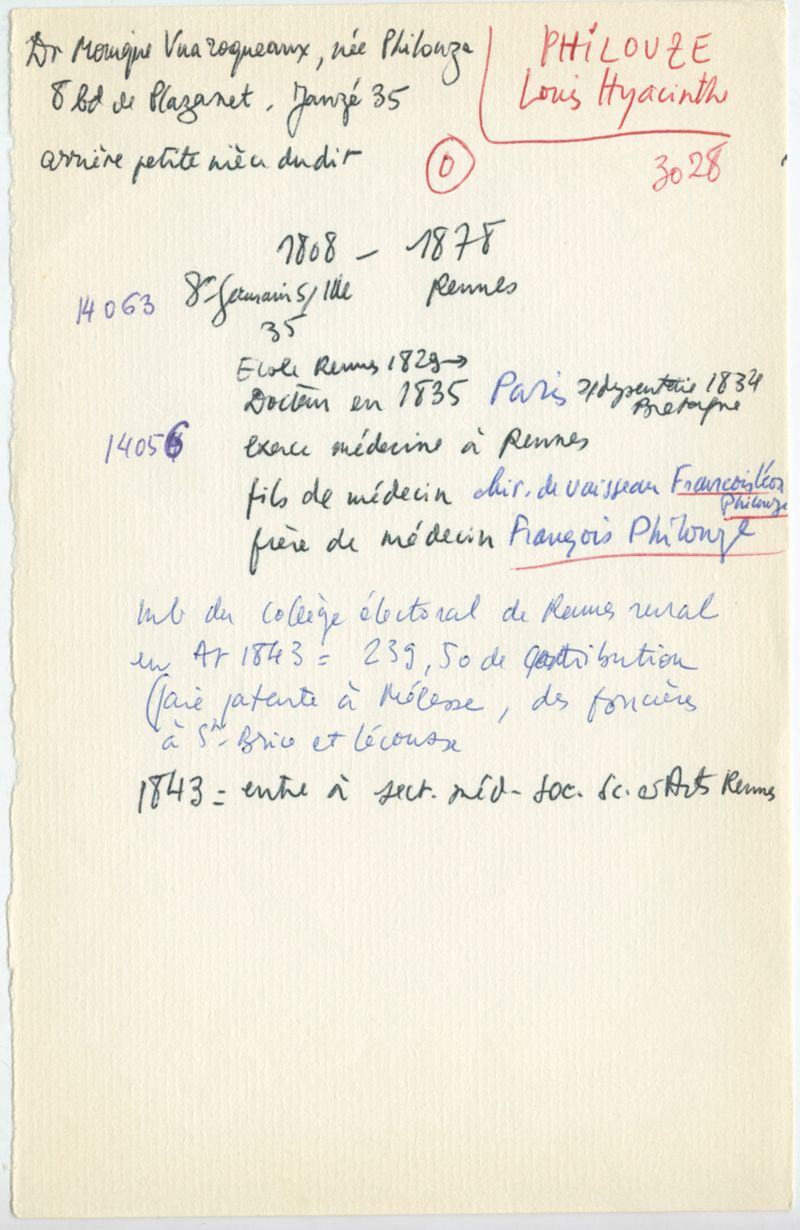 Dr Monique Vuaroqueaux, née Philouze
8 bd de Plazanet. Janzé 35
arrière petite nièce dudit
PHILOUZE
Louis Hyacinthe
0
3028
1808 - 1878
14063 St-Germain s/Ille Rennes
35
Ecole Rennes 1829→
Docteur en 1835 Paris dysenterie 1834
Bretagne
14056 exerce médecine à Rennes
fils de médecin chir. de vaisseau François Léon
Philouze
frère de médecin François Philouze
mb du collège électoral de Rennes rural
en At 1843 = 239,50 de contribution
(paie patente à Mélesse, des foncières
à St-Brice et Lécousse
1843 = entre à sect. méd- Soc. Sc. et Arts Rennes